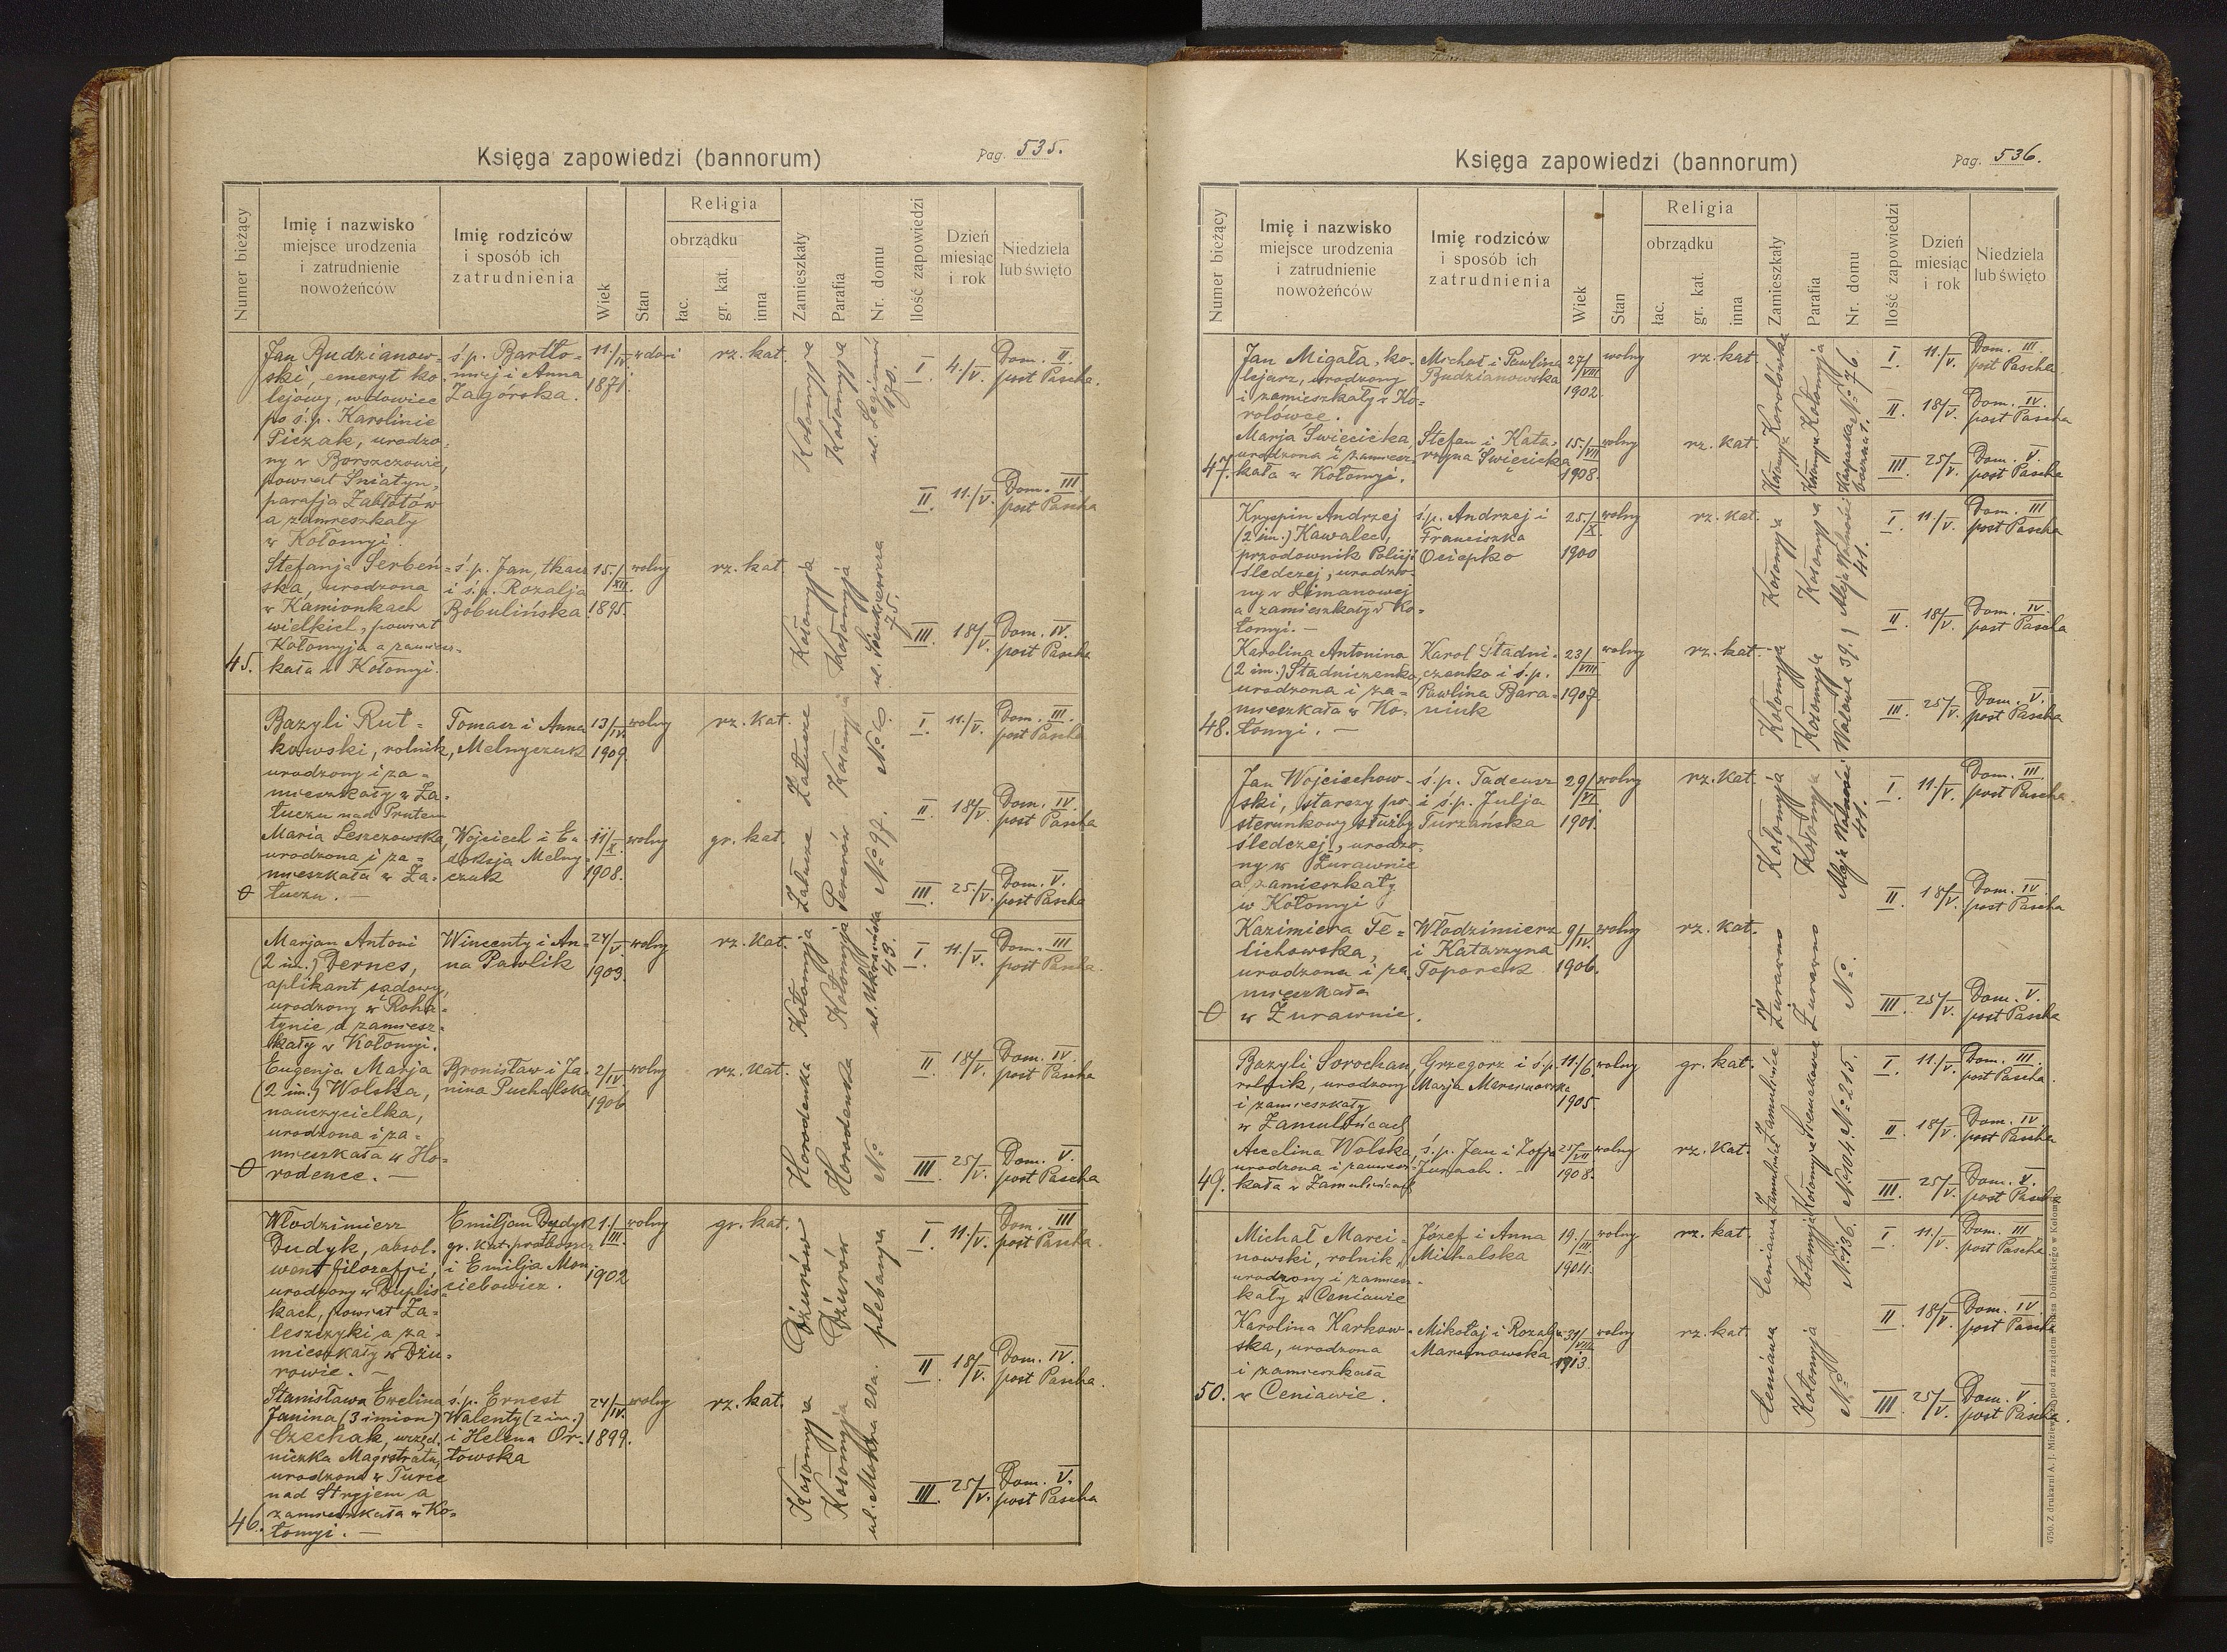 Księga zapowiedzi (bannorum)
Pag. 535.
Numer bieżący
Imię i nazwisko
miejsce urodzenia
i zatrudnienie
nowożeńców
Imię rodziców
i sposób ich
zatrudnienia
Wiek
Stan
Religia
obrządku
łac.
gr. kat.
inna
Zamieszkały
Parafia
Nr. domu
Ilość zapowiedzi
Dzień
miesiąc
i rok
Niedziela
lub święto
Jan Budzianow-
ski, emeryt ko
lejowy, wdowiec
po ś.p. Karolinie
Piczak, urodzo-
ny w Borszczowie,
powiat Śniatyn,
parafja Zabłotów
a zamieszkały
w Kołomyi.
ś.p. Bartło-
miej i Anna
Zagórska.
11./IV 1871.
rz. kat.
Kołomyja
Kołomyja
ul. Legionów
170.
I. 4./V. Dom. II. post Pascha.
II. 11./V. Dom. III post Pascha
III. 18/V. Dom. IV. post Pascha
45.
Stefanja Serbeń-
ska, urodzona
w Kamionkach
wielkich, powiat
Kołomyja a zamiesz-
kała w Kołomyi.
ś.p. Jan, tkacz
i ś.p. Rozalja
Bobulińska
15./XII. 1895.
wolny
rz. kat
Kołomyja
Kołomyja
ul. Sienkiewicza
75.
Bazyli Rut-
kowski, rolnik,
urodzony i za-
mieszkały w Za-
łuczu nad Prutem
Tomasz i Anna
Melnyczuk
13/IV. 1909.
wolny
rz. kat.
Załucze
Kołomyja
No 6.
I. 11./V. Dom. III. post Pascha
II. 18/V. Dom. IV. post Pascha
III. 25./V. Dom. V. post Pascha
Maria Leszczowska,
urodzona i za-
mieszkała w Za-
łuczu. —
Wojciech i Eu-
doksja Melny-
czuk
11/X. 1908.
wolny
gr. kat.
Załucze
Pererów
No 97.
Marjan Antoni
(2 im.) Dernes,
aplikant sądowy,
urodzony w Roha-
tynie a zamiesz-
kały w Kołomyi.
Wincenty i An-
na Pawlik
24/V. 1903.
wolny
rz. kat.
Kołomyja
Kołomyja
ul. Ukraińska
43.
I. 11./V. Dom. III post Pascha.
II. 18/V. Dom. IV. post Pascha
III. 25/V. Dom. V. post Pascha
Eugenja Marja
(2 im.) Wolska,
nauczycielka,
urodzona i za-
mieszkała w Ho-
rodence. —
Bronisław i Ja-
nina Puchalska
2/IV. 1906
wolny
rz. kat.
Horodenka
Horodenka
No
Włodzimierz
Dudyk, absol-
went filozofji,
urodzony w Duplis-
kach, powiat Za-
leszczyki a za-
mieszkały w Dżu-
rowie. —
Emiljan Dudyk
gr. kat. proboszcz
i Emilja Mon-
ciebowicz.
1./III. 1902
wolny
gr. kat.
Dżurów
Dżurów
plebanja
I. 11./V. Dom. III post Pascha.
II. 18/V. Dom. IV. post Pascha.
III. 25/V. Dom. V. post Pascha
46.
Stanisława Ewelina
Janina (3 imion)
Czechak, urzęd-
niczka Magistratu,
urodzona w Turce
nad Stryjem a
zamieszkała w Ko-
łomyi. —
ś.p. Ernest
Walenty (2 im.)
i Helena Or-
łowska
24/IV. 1899.
wolny
rz. kat.
Kołomyja
Kołomyja
ul. Mokra 20a.
Księga zapowiedzi (bannorum)
Pag. 536.
Numer bieżący
Imię i nazwisko
miejsce urodzenia
i zatrudnienie
nowożeńców
Imię rodziców
i sposób ich
zatrudnienia
Wiek
Stan
Religia
obrządku
łac.
gr. kat.
inna
Zamieszkały
Parafia
Nr. domu
Ilość zapowiedzi
Dzień
miesiąc
i rok
Niedziela
lub święto
Jan Migała, ko-
lejarz, urodzony
i zamieszkały w Ko-
rolówce.
Michał i Pawlina
Budzianowska
27/VIII 1902.
wolny
rz. kat.
Korolówka
Kołomyja
No 76.
I. 11./V. Dom. III. post Pascha.
II. 18/V. Dom. IV. post Pascha
III. 25/V. Dom. V. post Pascha
47.
Marja Świecicka,
urodzona i zamiesz-
kała w Kołomyi.
Stefan i Kata-
rzyna Święcicka
15./VII 1908.
wolny
rz. kat.
Kołomyja
Kołomyja
Karpacka
boczna 1.
Kryspin Andrzej
(2 im.) Kawalec,
przodownik Policji
śledczej, urodzo-
ny w Limanowej
a zamieszkały w Ko-
łomyi. —
ś.p. Andrzej i
Franciszka
Ociepko
25./X. 1900
wolny
rz. kat.
Kołomyja
Kołomyja
Aleja Wolności
41.
I. 11./V. Dom. III post Pascha
II. 18/V. Dom. IV. post Pascha
III. 25/V. Dom. V. post Pascha
48.
Karolina Antonina
(2 im.) Stadniczenko,
urodzona i za-
mieszkała w Ko-
łomyi. —
Karol Stadni-
czenko i ś.p.
Pawlina Bara-
niuk
23/VIII 1907.
wolny
rz. kat.
Kołomyja
Kołomyja
Wałowa 39.
Jan Wojciechow-
ski, starszy po-
sterunkowy służby
śledczej, urodzo-
ny w Żurawnie
a zamieszkały
w Kołomyi
ś.p. Tadeusz
i ś.p. Julja
Turzańska
29/VI. 1901.
wolny
rz. kat.
Kołomyja
Kołomyja
Aleja Wolności
41.
I. 11./V. Dom. III. post Pascha.
II. 18/V. Dom. IV. post Pascha
III. 25/V. Dom. V. post Pascha
Kazimiera Te-
lichowska,
urodzona i za-
mieszkała
w Żurawnie.
Włodzimierz
i Katarzyna
Toporek
9/IV. 1906.
wolny
rz. kat.
Żurawno
Żurawno
No.
Bazyli Sorochan
rolnik, urodzony
i zamieszkały
w Zamulińcach
Grzegorz i ś.p.
Marja
11./6. 1905.
wolny
gr. kat.
Zamulińce
Siemakowce
No 215.
I. 11./V. Dom. III. post Pascha.
II. 18/V. Dom. IV. post Pascha
III. 25/V. Dom. V. post Pascha
49.
Accelina Wolska,
urodzona i zamiesz-
kała w Zamulińcach
ś.p. Jan i Zofja
Junach. —
25/VII 1908.
wolny
rz. kat.
Zamulińce
Kołomyja
No 104.
Michał Marci-
nowski, rolnik,
urodzony i zamiesz-
kały w Ceniawie
Józef i Anna
Michalska
19./III. 1904.
wolny
rz. kat.
Ceniawa
Kołomyja
No 136.
I. 11./V. Dom. III post Pascha
II. 18/V. Dom. IV. post Pascha
III. 25/V. Dom. V. post Pascha.
50.
Karolina Karkow-
ska, urodzona
i zamieszkała
w Ceniawie.
Mikołaj i Rozalja
Marcinowska
31/VIII. 1913
wolny
rz. kat.
Ceniawa
Kołomyja
No
4750. Z drukarni A. J. Miziewicza pod zarządem Maksa Dolińskiego w Kołomyi